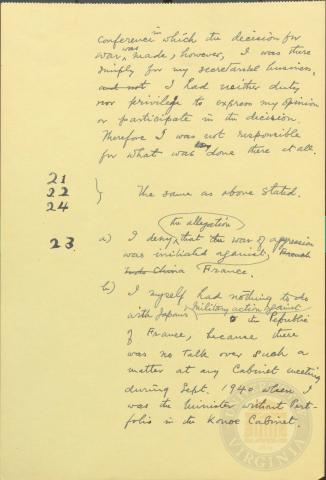 conference in which the decision for
war was made, however, I was there
simply for my secretarial business,
and not I had neither duty
nor privilege to express my opinion
or participate in the decision.
Therefore I was not responsible
for what was done there at all.
21
22 } The same as above stated.
24
the allegation
23. a) I deny that the war of aggression
was initiated against French
Indo China France.
b) I myself had nothing to do
with Japan's military action against
the Republic
of France, because there
was no talk over such a
matter at any Cabinet meeting
during Sept. 1940 when I
was the Minister without Port-
folio in the Konoe Cabinet.
VIRGINIA